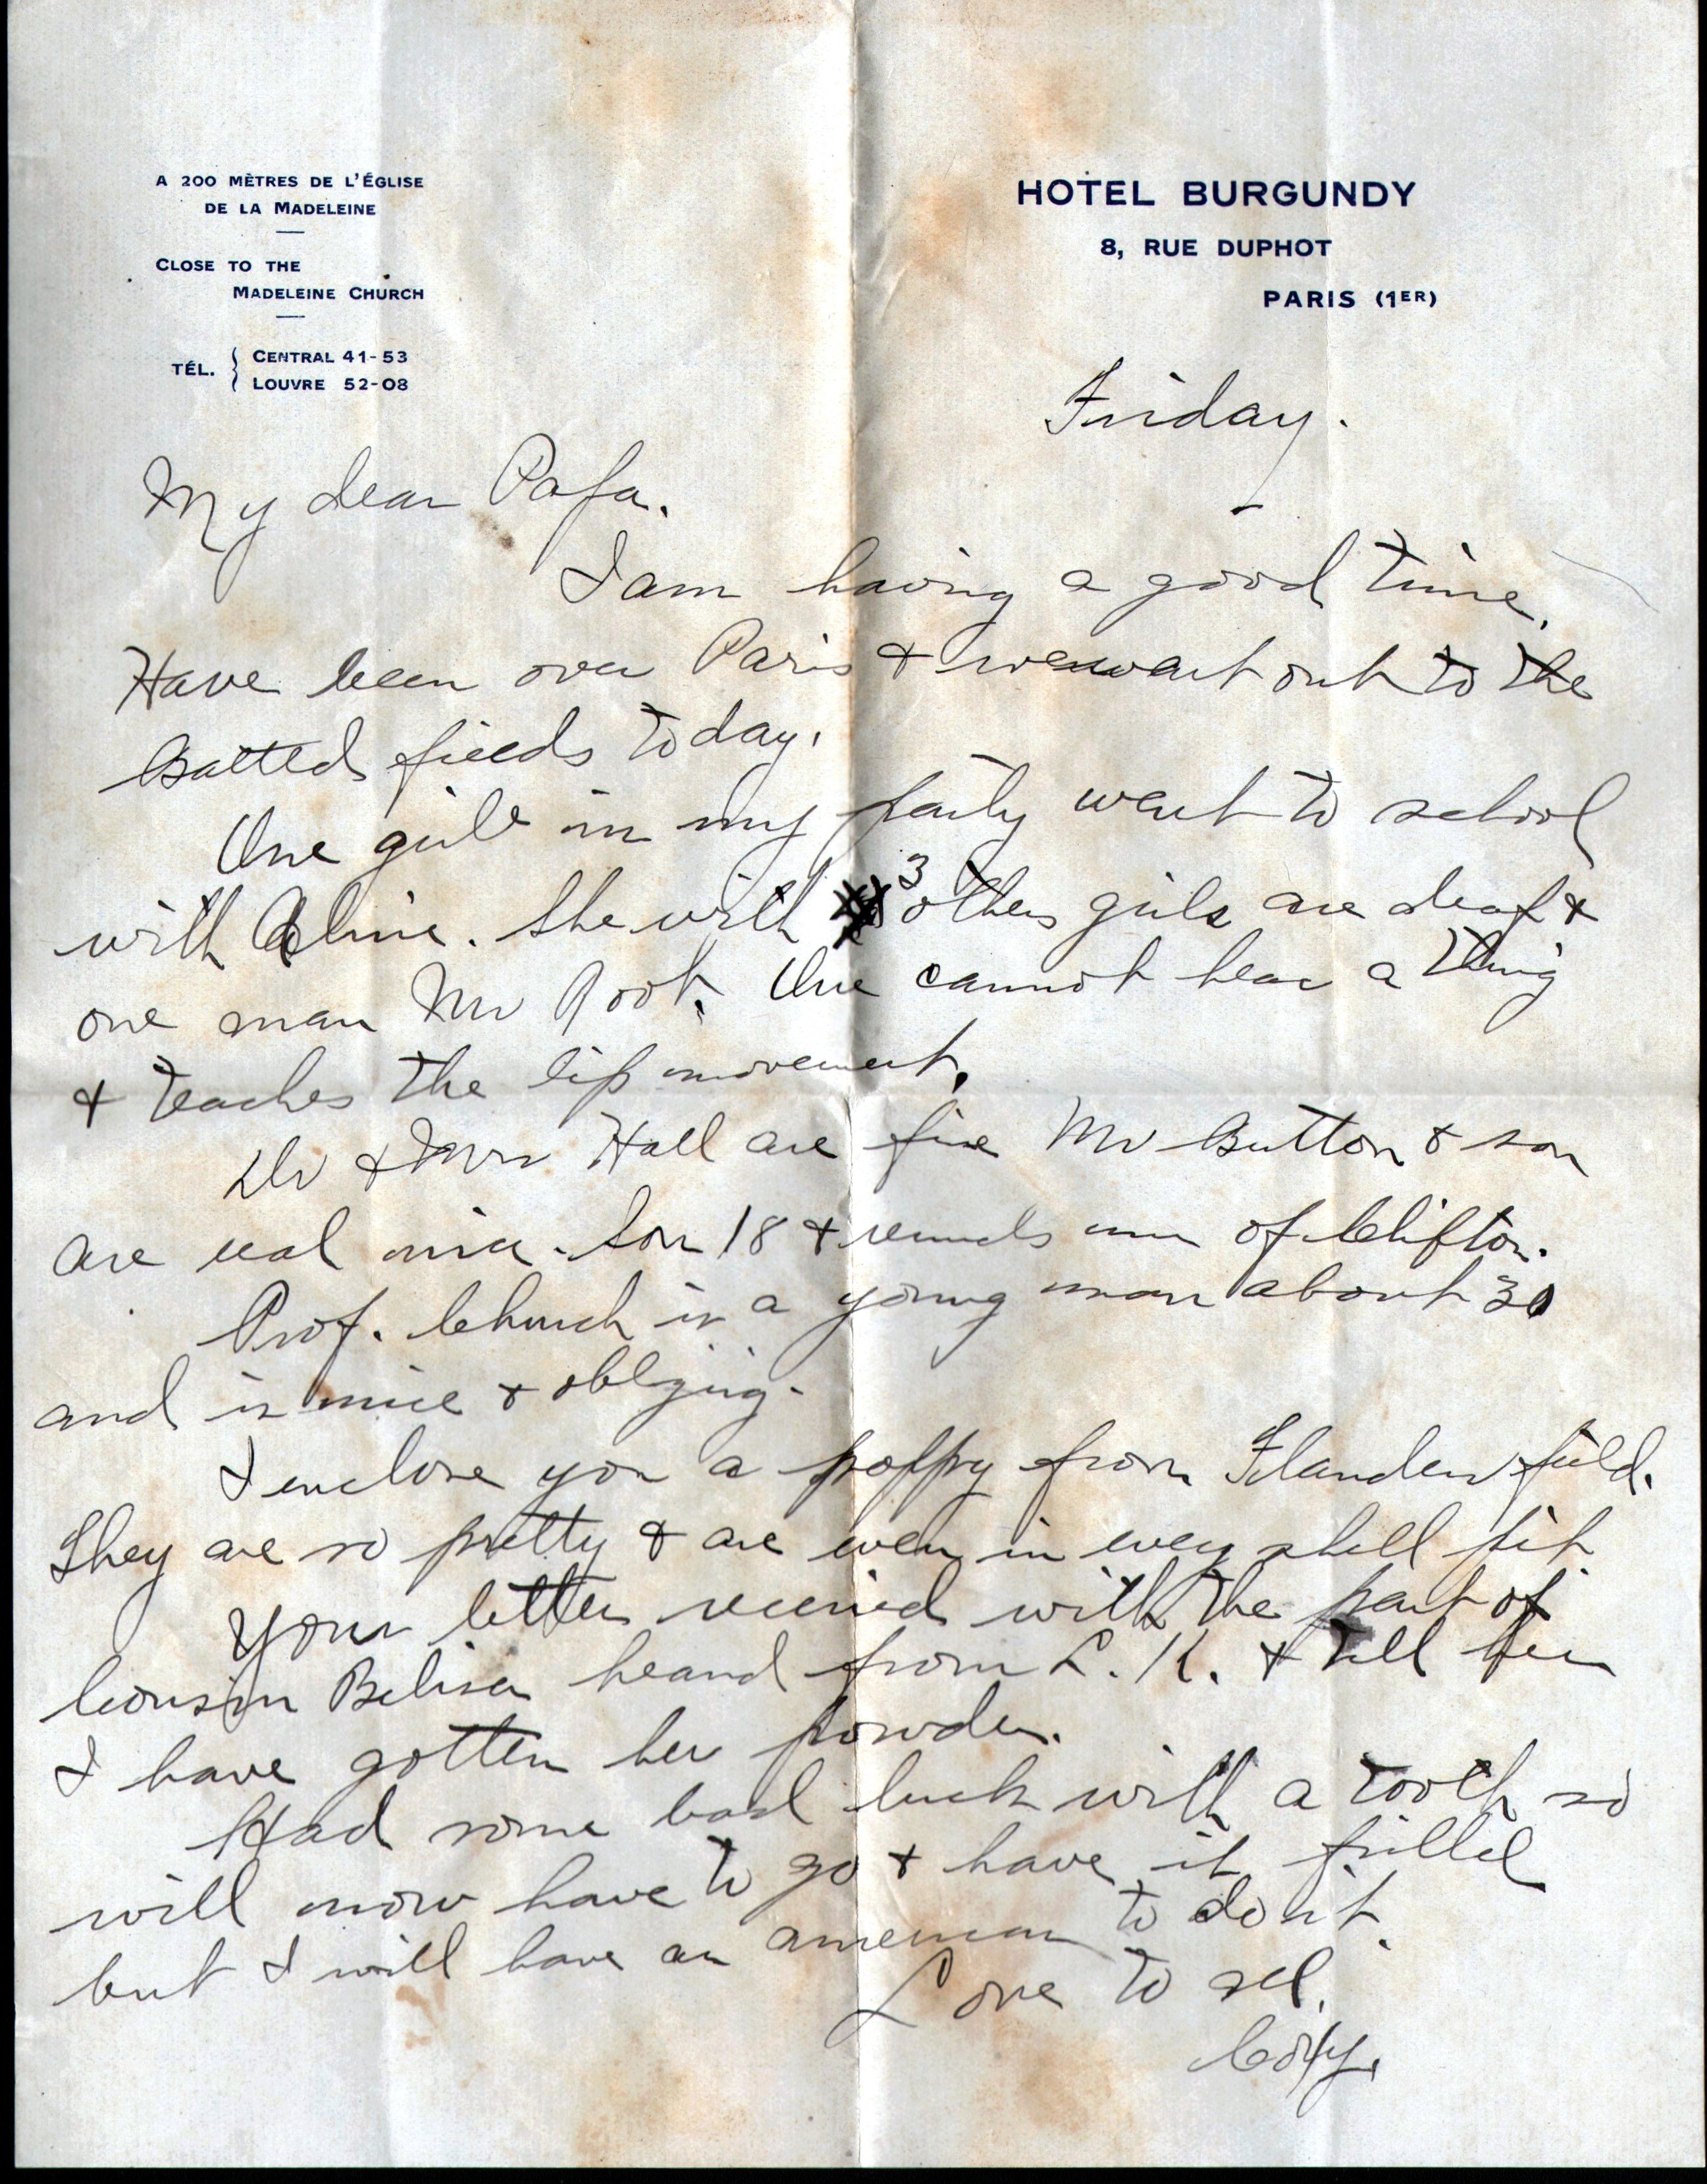 A 200 MÈTRES DE L'ÉGLISE
DE LA MADELEINE
CLOSE TO THE
MADELEINE CHURCH
TÉL. { CENTRAL 41-53
LOUVRE 52-08
HOTEL BURGUNDY
8, RUE DUPHOT
PARIS (1ER)
Friday.
My dear Papa.
I am having a good time.
Have been over Paris & we went out to the
Battled fields today.
One girl in my party went to school
with Aline. She with 3 others girls are deaf &
one man Mr Root. One cannot hear a thing
& teaches the lip movement.
Dr & Mrs Hall are fine Mr Button & son
are real nice. Son 18 & reminds me of Clifton.
Prof. Church is a young man about 30
and is nice & obliging.
I enclose you a poppy from Flanders field.
They are so pretty & are even in every shell pit
Your letter received with the part of
Cousin heard from L. K. & tell her
I have gotten her powder.
Had some bad luck with a tooth so
will now have to go & have it filled
but I will have an american to do it.
Love to all.